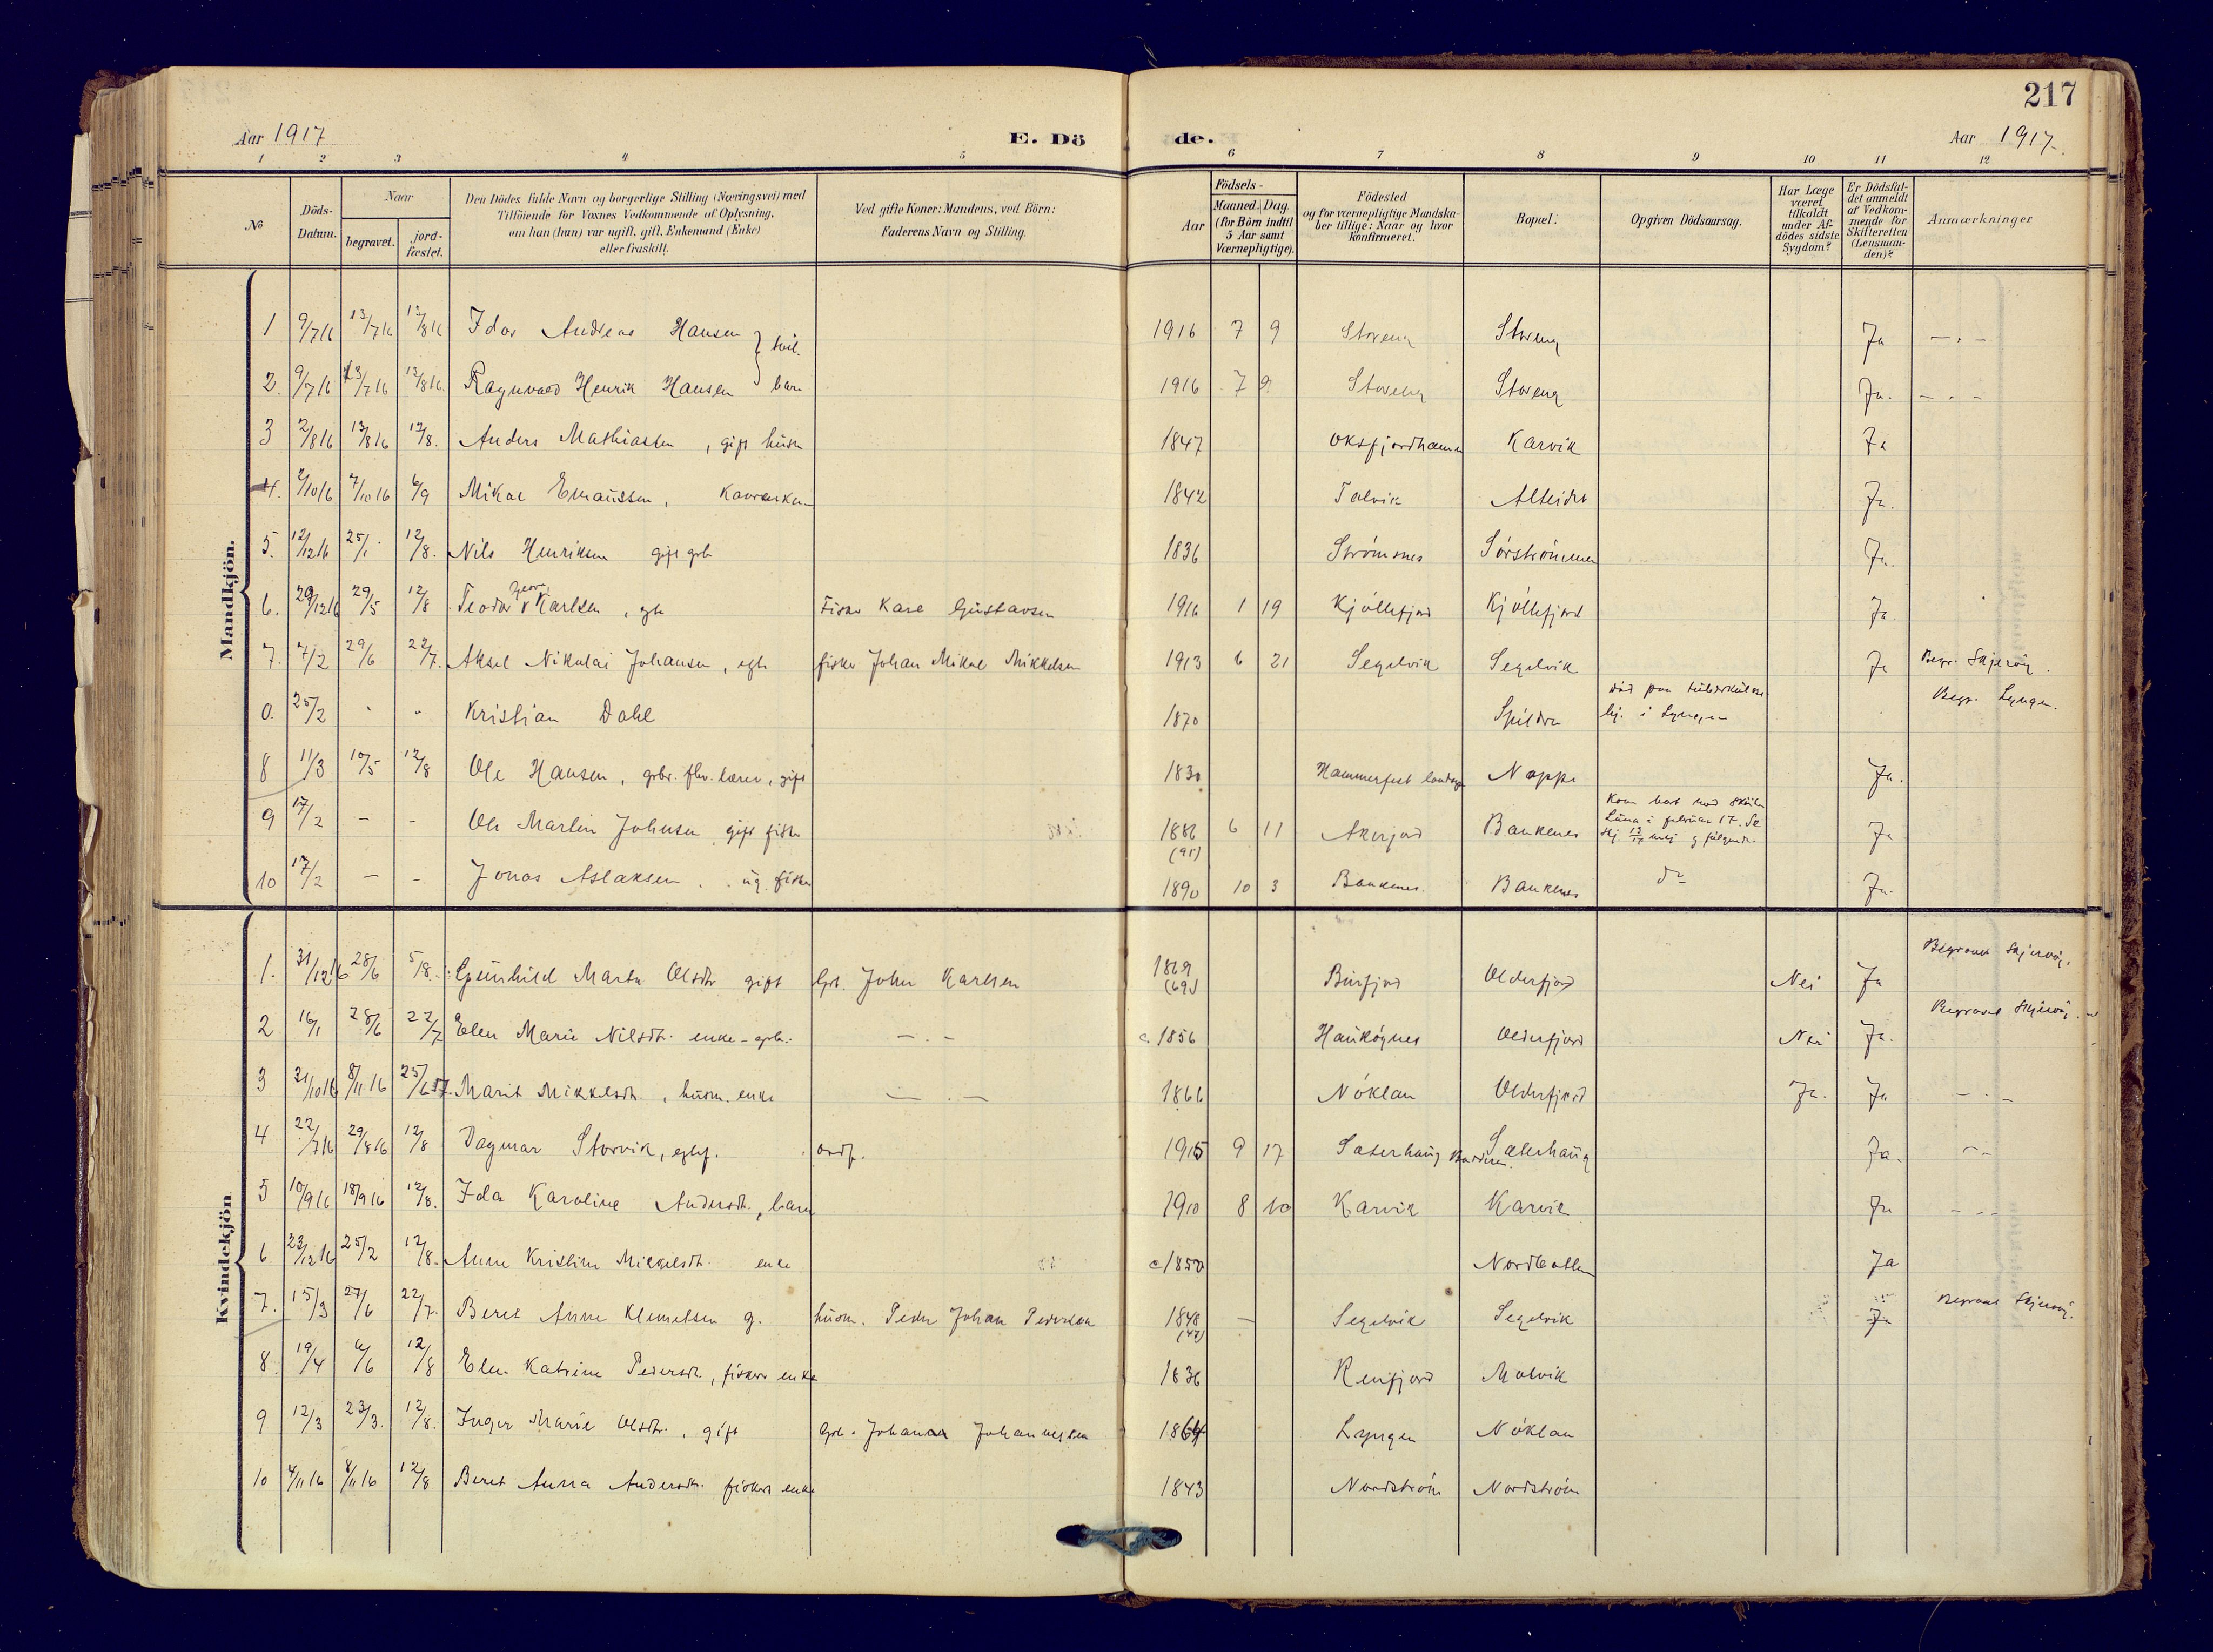 217
Aar 1917 E. Dö de. Aar 1917.
1 2 3 4 5 6 7 8 9 10 11 12
No
Döds-Datum.
Naar
begravet.
jord-fæstet.
Den Dödes fulde Navn og borgerlige Stilling (Næringsvei) med
Tilföiende for Voxnes Vedkommende af Oplysning,
om han (hun) var ugift, gift, Enkemand (Enke)
eller fraskilt.
Ved gifte Koner: Mandens, ved Börn:
Faderens Navn og Stilling.
Födsels-
Aar
Maaned. Dag.
(for Börn indtil
5 Aar samt
Værnepligtige).
Födested
og for værnepligtige Mandska-
ber tillige: Naar og hvor
Konfirmeret.
Bopæl.
Opgiven Dödsaarsag.
Har Læge
været
tilkaldt
under Af-
dödes sidste
Sygdom?
Er Dödsfal-
det anmeldt
af Vedkom-
mende for
Skifteretten
(Lensman-
den)?
Anmærkninger
Mandkjön.
1 9/7 16 13/7 16 12/8 16 Idar Andreas Hansen } tvil. 1916 7 9 Storeng Storeng Ja - " -
2. 9/7 16 13/7 16 12/8 16. Ragnvald Henrik Hansen barn 1916 7 9. Storeng Storeng Ja. - " -
3 2/8 16 13/8 16 12/8. Anders Mathiassen, gift husm 1847 Oksfjordhamn Karvik Ja
4. /10 16 7/10 16 6/9 Mikal Emaussen, 1842 Talvik Alteidet Ja.
5. 12/12 16 25/1 12/8. Nils Henriksen gift grb 1836 Strömsnes Sörströmmen Ja.
6. 29/12 16 29/5 12/8 Teodor Georg Karlsen, gb Fisker Karl Gustavsen 1916 1 19 Kjöllefjord Kjöllefjord Ja
7. 7/2 29/6 22/7. Aksel Nikolai Johansen, egb fisker Johan Mikal Mikkelsen 1913 6 21 Segelvik Segelvik Ja Begr. Skjervöy.
0. 25/2 " " Kristian Dahl 1870 Spildra död paa tuberkulose
hj. i Lyngen Begr. Lyngen.
8 11/3 10/5 12/8 Ole Hansen, grbr. fhv. lærer, gift 1830 Hammerfest landsogn Nappe Ja.
9 17/2 - - Ole Martin Johnsen, gift fisker 1886 6 11 Akerfjord Baukenes Kom bort med sköiten
Luna i februar 17. Se
Ja
10 17/2 - - Jonas Aslaksen. ug. fisker 1890 10 3 Baukenes. Baukenes do Ja.
Kvindekjön
1. 31/12 16 28/6 5/8. Gunhild Marta Olsdtr gift Grb. John Karlsen 1869
(69) Burfjord Olderfjord Nei Ja Begravet Skjervöy.
2 16/1 28/6 22/7 Elen Marie Nilsdtr. enke - grb. - " - c. 1856 Hauköynes Olderfjord Nei Ja. Begravet Skjervöy.
3 31/10 16 8/11 16 25/6 Marit Mikkelsdtr., husm. enke - " - 1866 Nöklan Olderfjord Ja. Ja - " -
4 22/7 16 29/8 16 12/8 Dagmar Storvik, 1915 9 17 Saterhaug Saterhaug Ja. - -
5 10/9 16 18/9 16 12/8. Ida Karoline Andersdtr., barn 1910 8 10 Karvik Karvik Ja - - -
6 23/12 16 25/2 12/8. Anne Kristine Mikkelsdtr. enke c. 1850 Nordbotten Ja
7. 15/3 27/6 22/7. Beret Anne Klemetsen g. husm. Peder Johan Pedersen 1848
(48) - Segelvik Segelvik Ja Begravet Skjervöy.
8. 19/4 6/6 12/8 Elen Katrine Pedersdtr., fiskers enke 1836 Reinfjord Malvik
9 12/3 23/3. 12/8. Inger Marie Olsdtr., gift Grb. Johan Johannessen 1864 Lyngen Nöklan
10 4/11 16 8/11 16 12/8 Beret Anna Andersdtr. fiskers enke 1843 Nordström Nordström